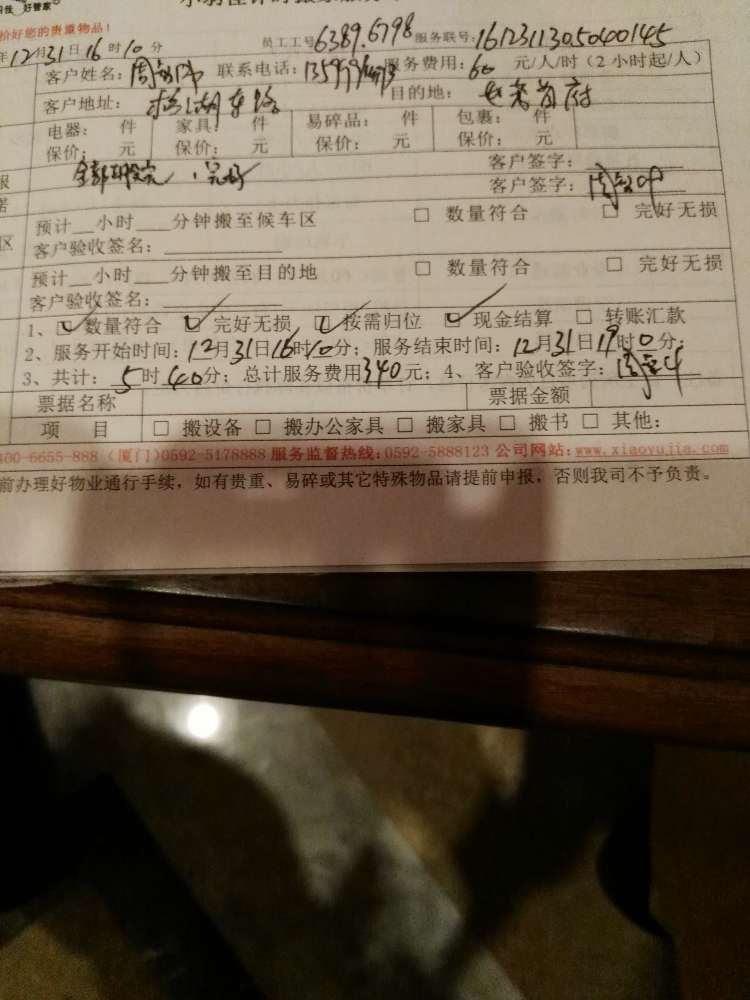 好管家
价好您的贵重物品！
年12月31日16时10分 员工工号6389.6798 服务联号：16123113050400145
客户姓名：周 联系电话： 服务费用：60 元/人/时（2小时起/人）
客户地址： 目的地：
电器： 件 家具： 件 易碎品： 件 包裹： 件
保价： 元 保价： 元 保价： 元 保价： 元
客户签字：
全部 完好 客户签字：周
预计__小时___分钟搬至候车区 □ 数量符合 □ 完好无损
客户验收签名：
预计__小时___分钟搬至目的地 □ 数量符合 □ 完好无损
客户验收签名：
1、☑数量符合 ☑完好无损 ☑按需归位 ☑现金结算 □ 转账汇款
2、服务开始时间：12月31日16时10分；服务结束时间：12月31日19时0分；
3、共计：5时40分；总计服务费用340元；4、客户验收签字：周
票据名称 票据金额
项 目 □ 搬设备 □ 搬办公家具 □ 搬家具 □ 搬书 □ 其他：
400-6655-888（厦门）0592-5178888 服务监督热线：0592-5888123 公司网站：www.xiaoyujia.com
前办理好物业通行手续，如有贵重、易碎或其它特殊物品请提前申报，否则我司不予负责。